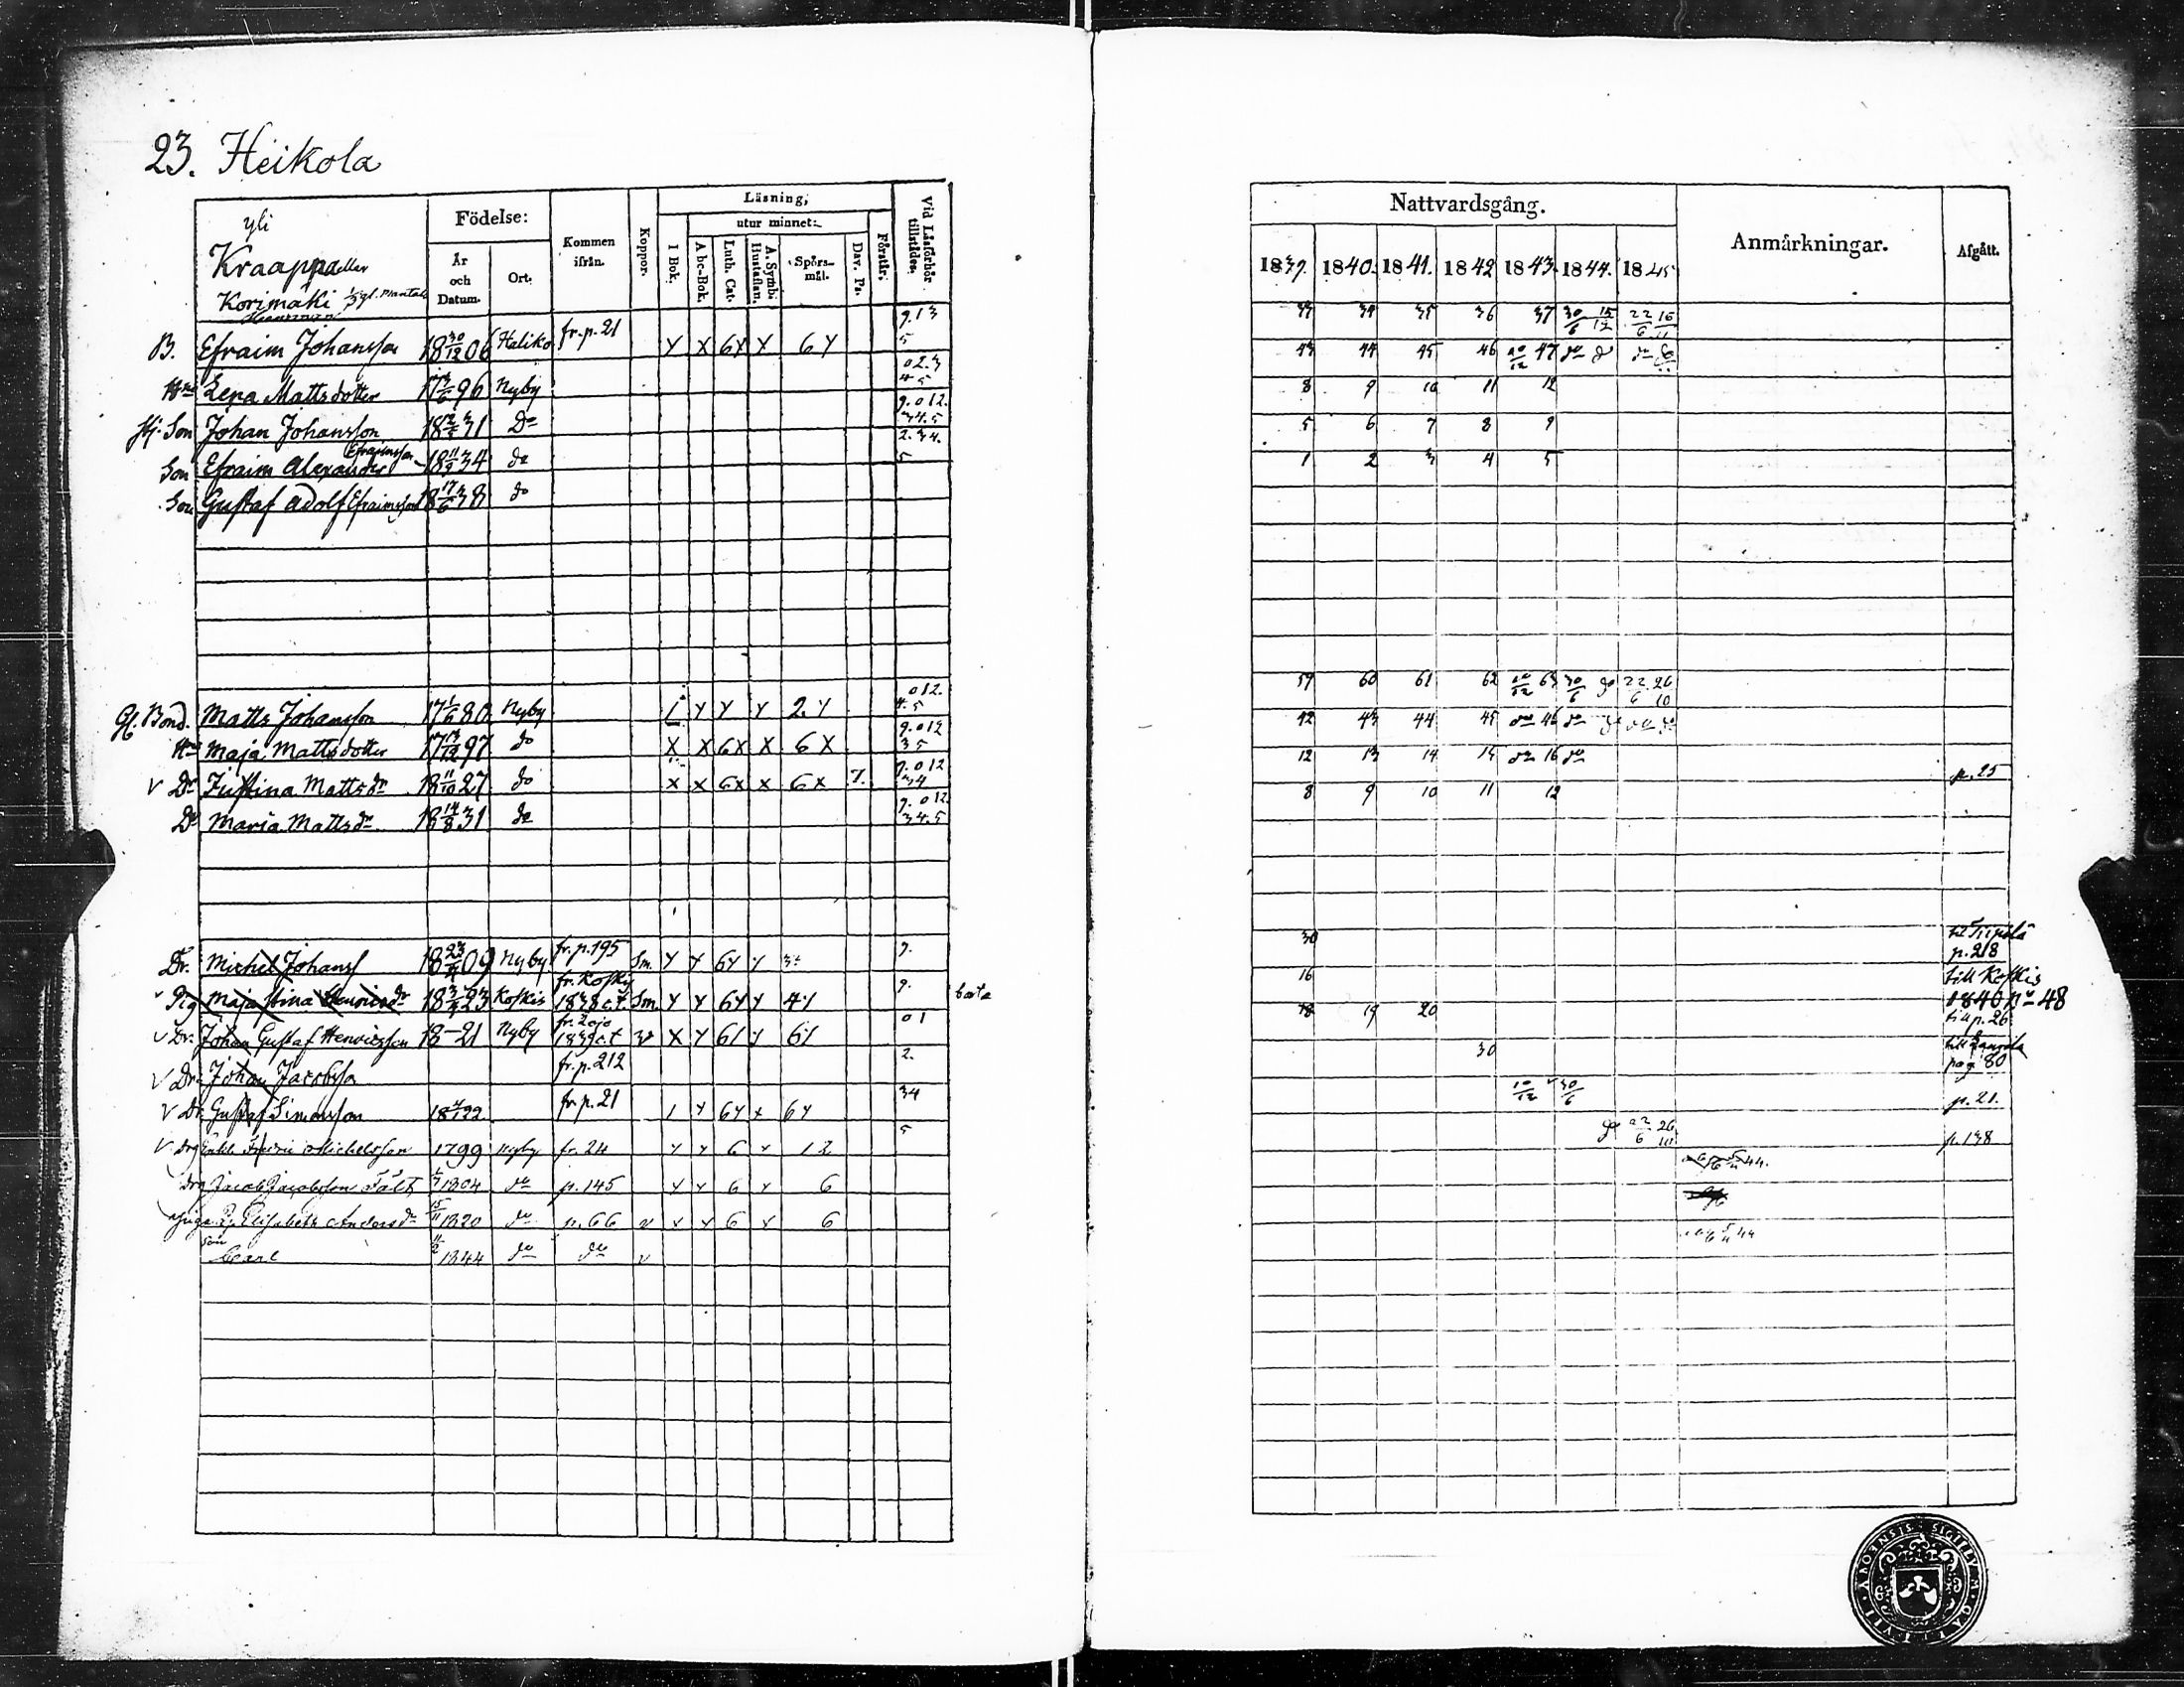 23. Heikola
yli
Kraappa eller
Korimäki 1/3 gl. mantal
Födelse:
År och Datum.
Ort.
Kommen ifrån.
Koppor.
Läsning,
utur minnet:
I Bok.
Abc-Bok.
Luth. Cat.
A. Symb. Hustaflan.
Spörs-mål.
Dav. Ps.
Förstår.
Vid Läsförhör tillstädes.
B. Efraim Johansson 18 30/12 06 Haliko fr. p. 21 Y X 6X X 6Y 9.13 5
Hu Lena Mattsdotter 17 96 Nyby 02.3 4 5
Hj. Son Johan Johansson 18 31 Do 9.012. 34.5
Son Efraim Alexander Efraimsson 18 11/9 34 do 2.34. 5
Son Gustaf Adolf Efraimsson 18 17/6 38 do
Gl. Bond. Matts Johansson 17 1/6 80 Nyby Y Y Y 2.Y 012. 4.5
Hu Maja Mattsdotter 17 13/12 97 do X X 6X X 6X 9.012 35
v Dr Justina Mattsdr 18 11/10 27 do X X 6X X 6X 7. 9.012 34
Dr Maria Mattsdr 18 14/8 31 do 9.012. 34.5
Dr. Michel Johanss 18 09 Nyby fr. p. 195 Sm. Y Y 6Y Y 9.
Pig Maja Stina Henricsdr 18 23 Koskis fr. Koskis 1838 c.t. Sm. Y Y 6Y Y 4Y 9. borta
v Dr. Johan Gustaf Henricsson 18—21 Nyby fr. Lojo 1839 c.t v X Y 6Y Y 6Y 01
v Dr. Johan Jacobsson fr. p. 212 2.
v Dr. Gustaf Simonsson 18 22 fr. p. 21 Y 6Y x 6Y 34
v Drg Enkl. Fredric Michelsson 1799 Nyby fr. 24 Y Y 6 Y 12 5
Drg Jacob Jacobsson Fält 1804 do p. 145 Y Y 6 Y 6
Elisabeth Andersdr 15/11 1820 do p. 66 v Y Y 6 Y 6
son Carl 11/2 1844 do do v
Nattvardsgång.
Anmärkningar.
Afgått.
1839. 1840. 1841. 1842 1843. 1844. 1845
33 34 35 36 37 30/6 15/12 22/6 16/11
43 44 45 46 10/12 47 do do do do
8 9 10 11 12
5 6 7 8 9
1 2 3 4 5
59 60 61 62 10/12 63 30/6 do 22/6 26/10
42 43 44 45 do 46 do do do do
12 13 14 15 do 16 do p. 25
8 9 10 11 12
30 p. 218
16 till Koskis 1840 No 48
18 19 20 till p. 26
30 pag. 80
10/12 30/6 p. 21.
do 22/6 26/10 p. 138